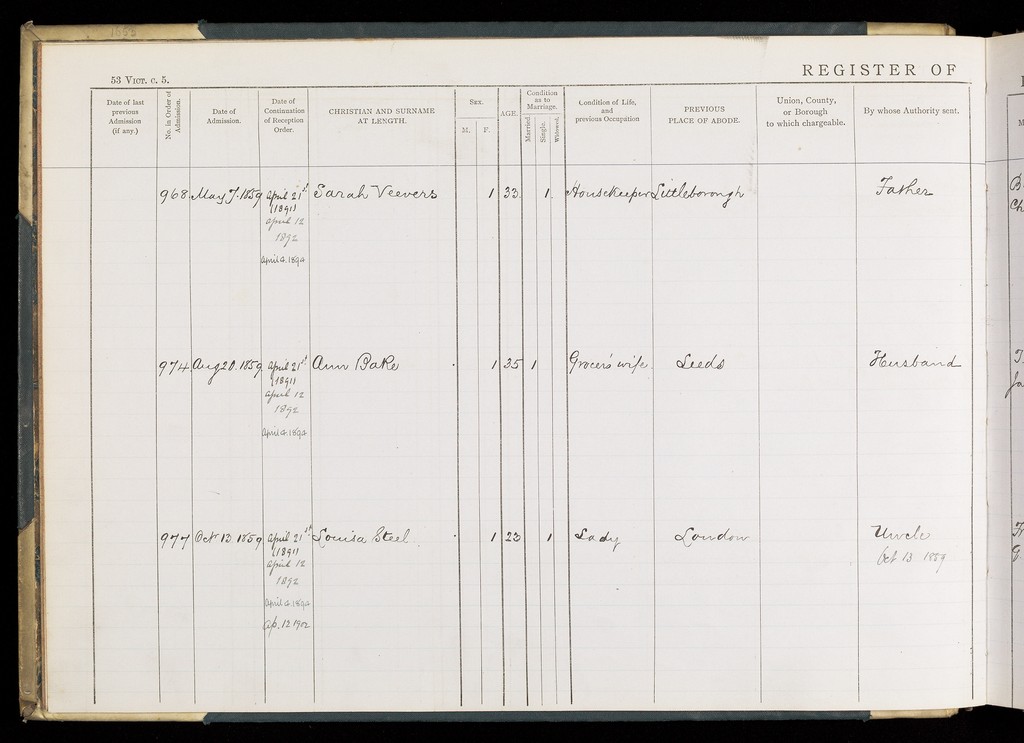 1858
53 VICT. c. 5.
REGISTER OF
Date of last previous Admission (if any.)
No. in Order of Admission.
Date of Admission.
Date of Continuation of Reception Order.
CHRISTIAN AND SURNAME AT LENGTH.
SEX.
M.
F.
AGE.
Condition as to Marriage.
Married.
Single.
Widowed.
Condition of Life, and previous Occupation
PREVIOUS PLACE OF ABODE.
Union, County, or Borough to which chargeable.
By whose Authority sent.
968 May 7. 1859 April 21st Sarah Veevers 1 33 1 Housekeeper Littleborough Father
(1891)
April 12
1892
April 4. 1894
974 Aug 20. 1859 April 21st Ann Bake 1 35 1 Grocers' wife Leeds Husband
(1891)
April 12
1892
April 4. 1894
977 Oct 13 1859 April 21st Louisa Steel 1 23 1 Lady London Uncle
(1891)
Oct 13 1859
April 12
1892
April 4. 1894
Ap. 12 1902